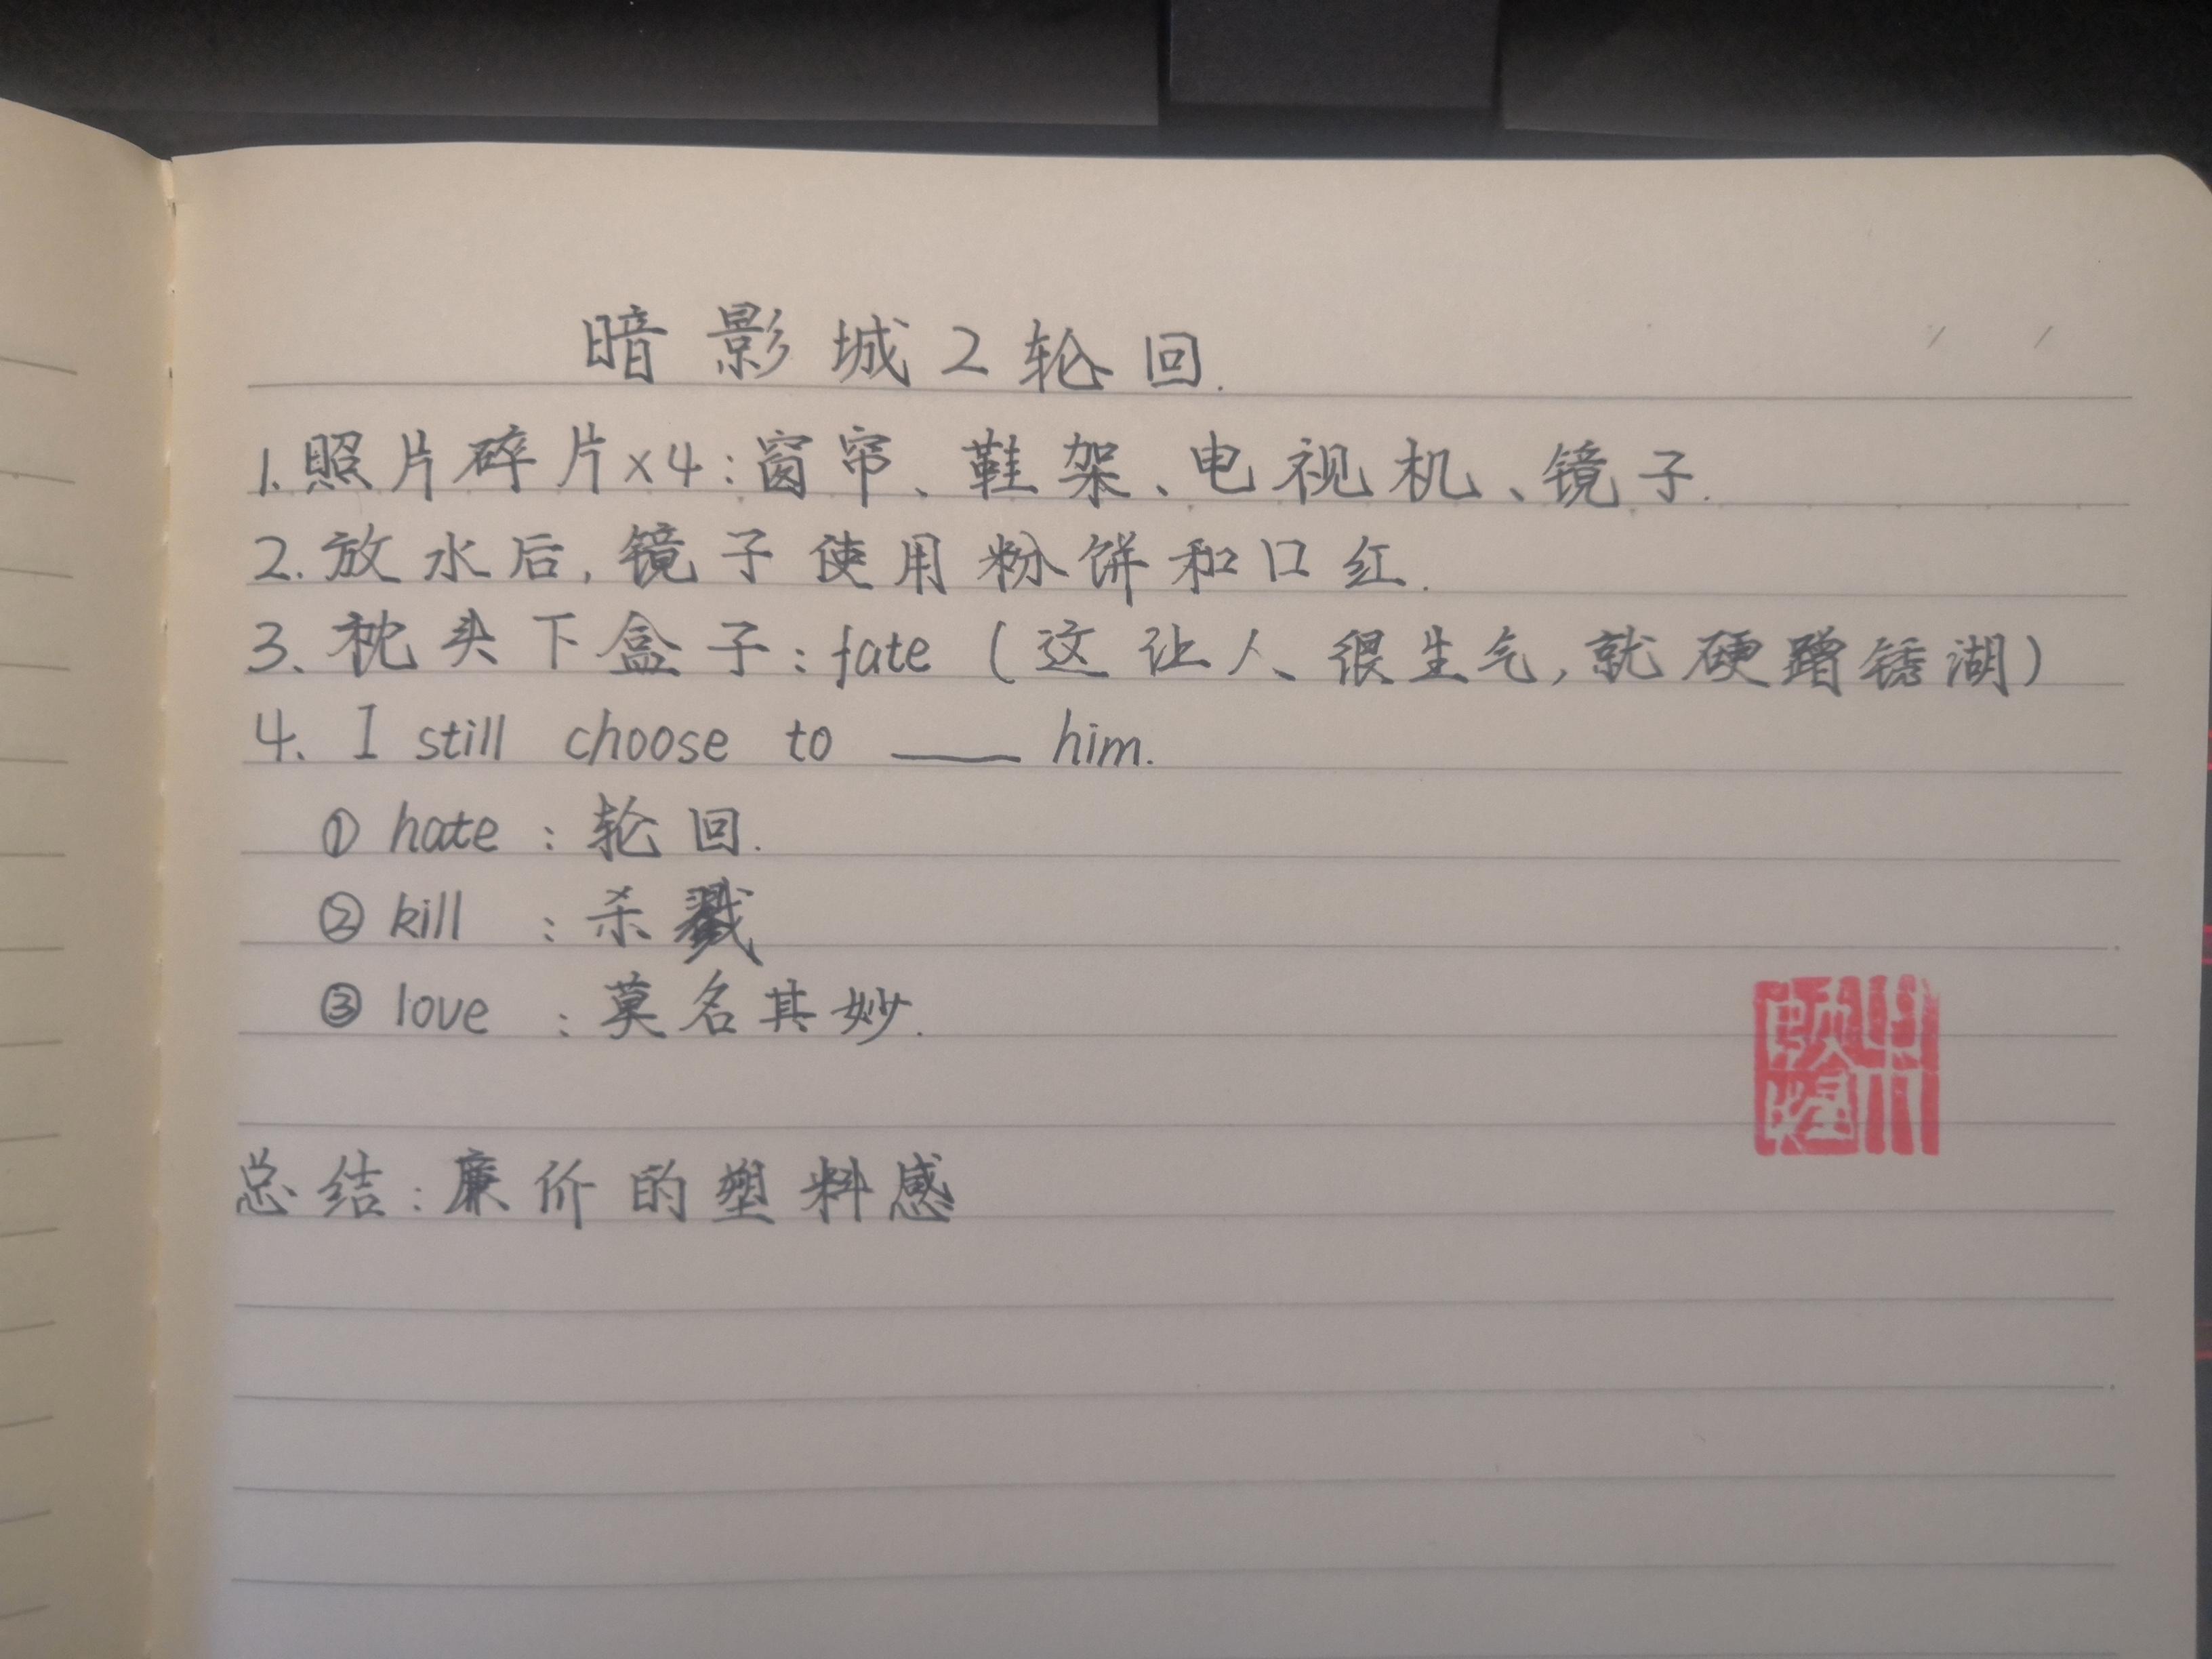 暗影城2轮回.
1.照片碎片x4:窗帘、鞋架、电视机、镜子.
2.放水后,镜子使用粉饼和口红.
3、枕头下盒子:fate(这让人很生气,就硬蹭锈湖)
4. I still choose to ____ him.
① hate:轮回.
② kill:杀戮
③ love:莫名其妙.
总结:廉价的塑料感